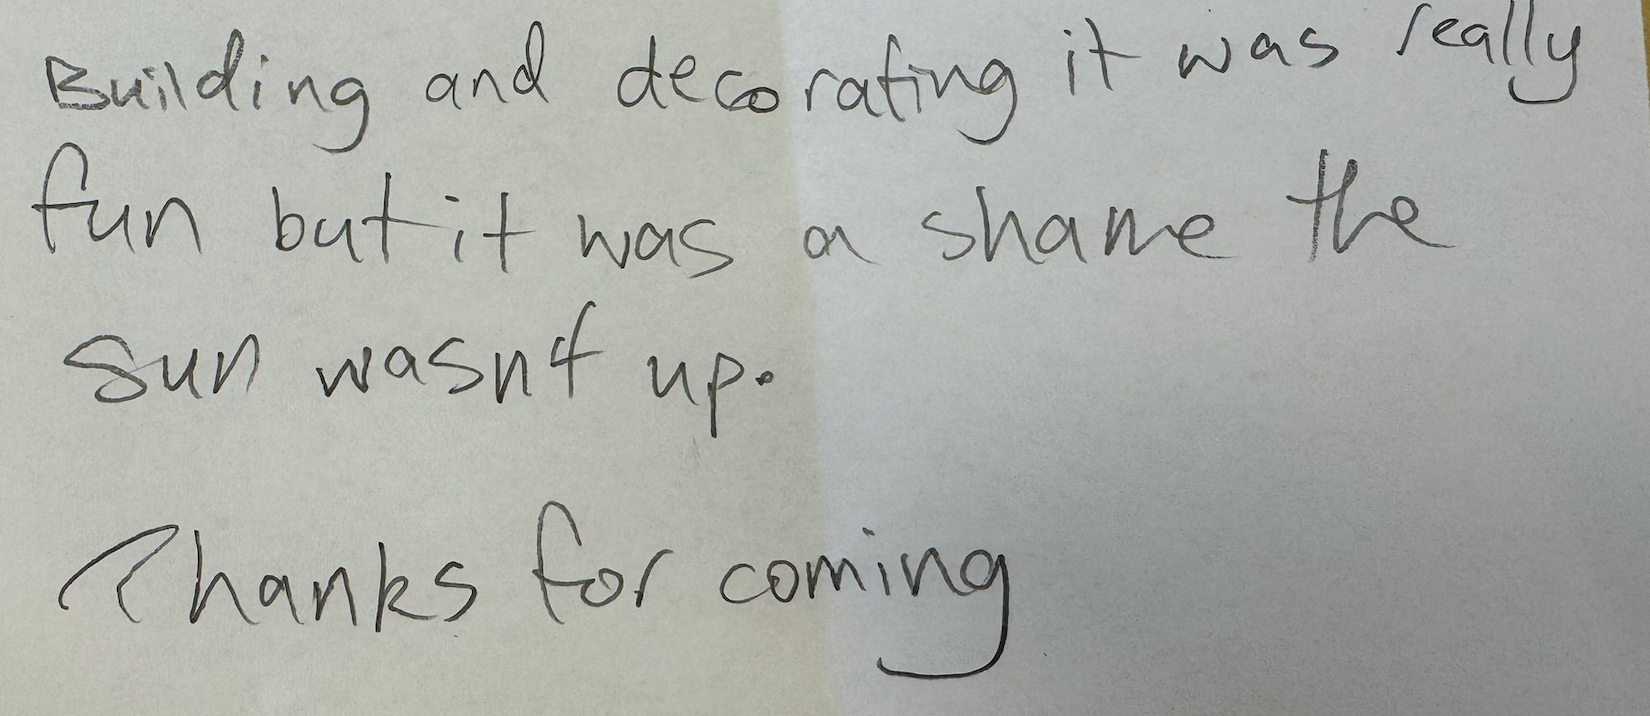 Building and decorating it was really
fun but it was a shame the
sun wasnt up.
Thanks for coming